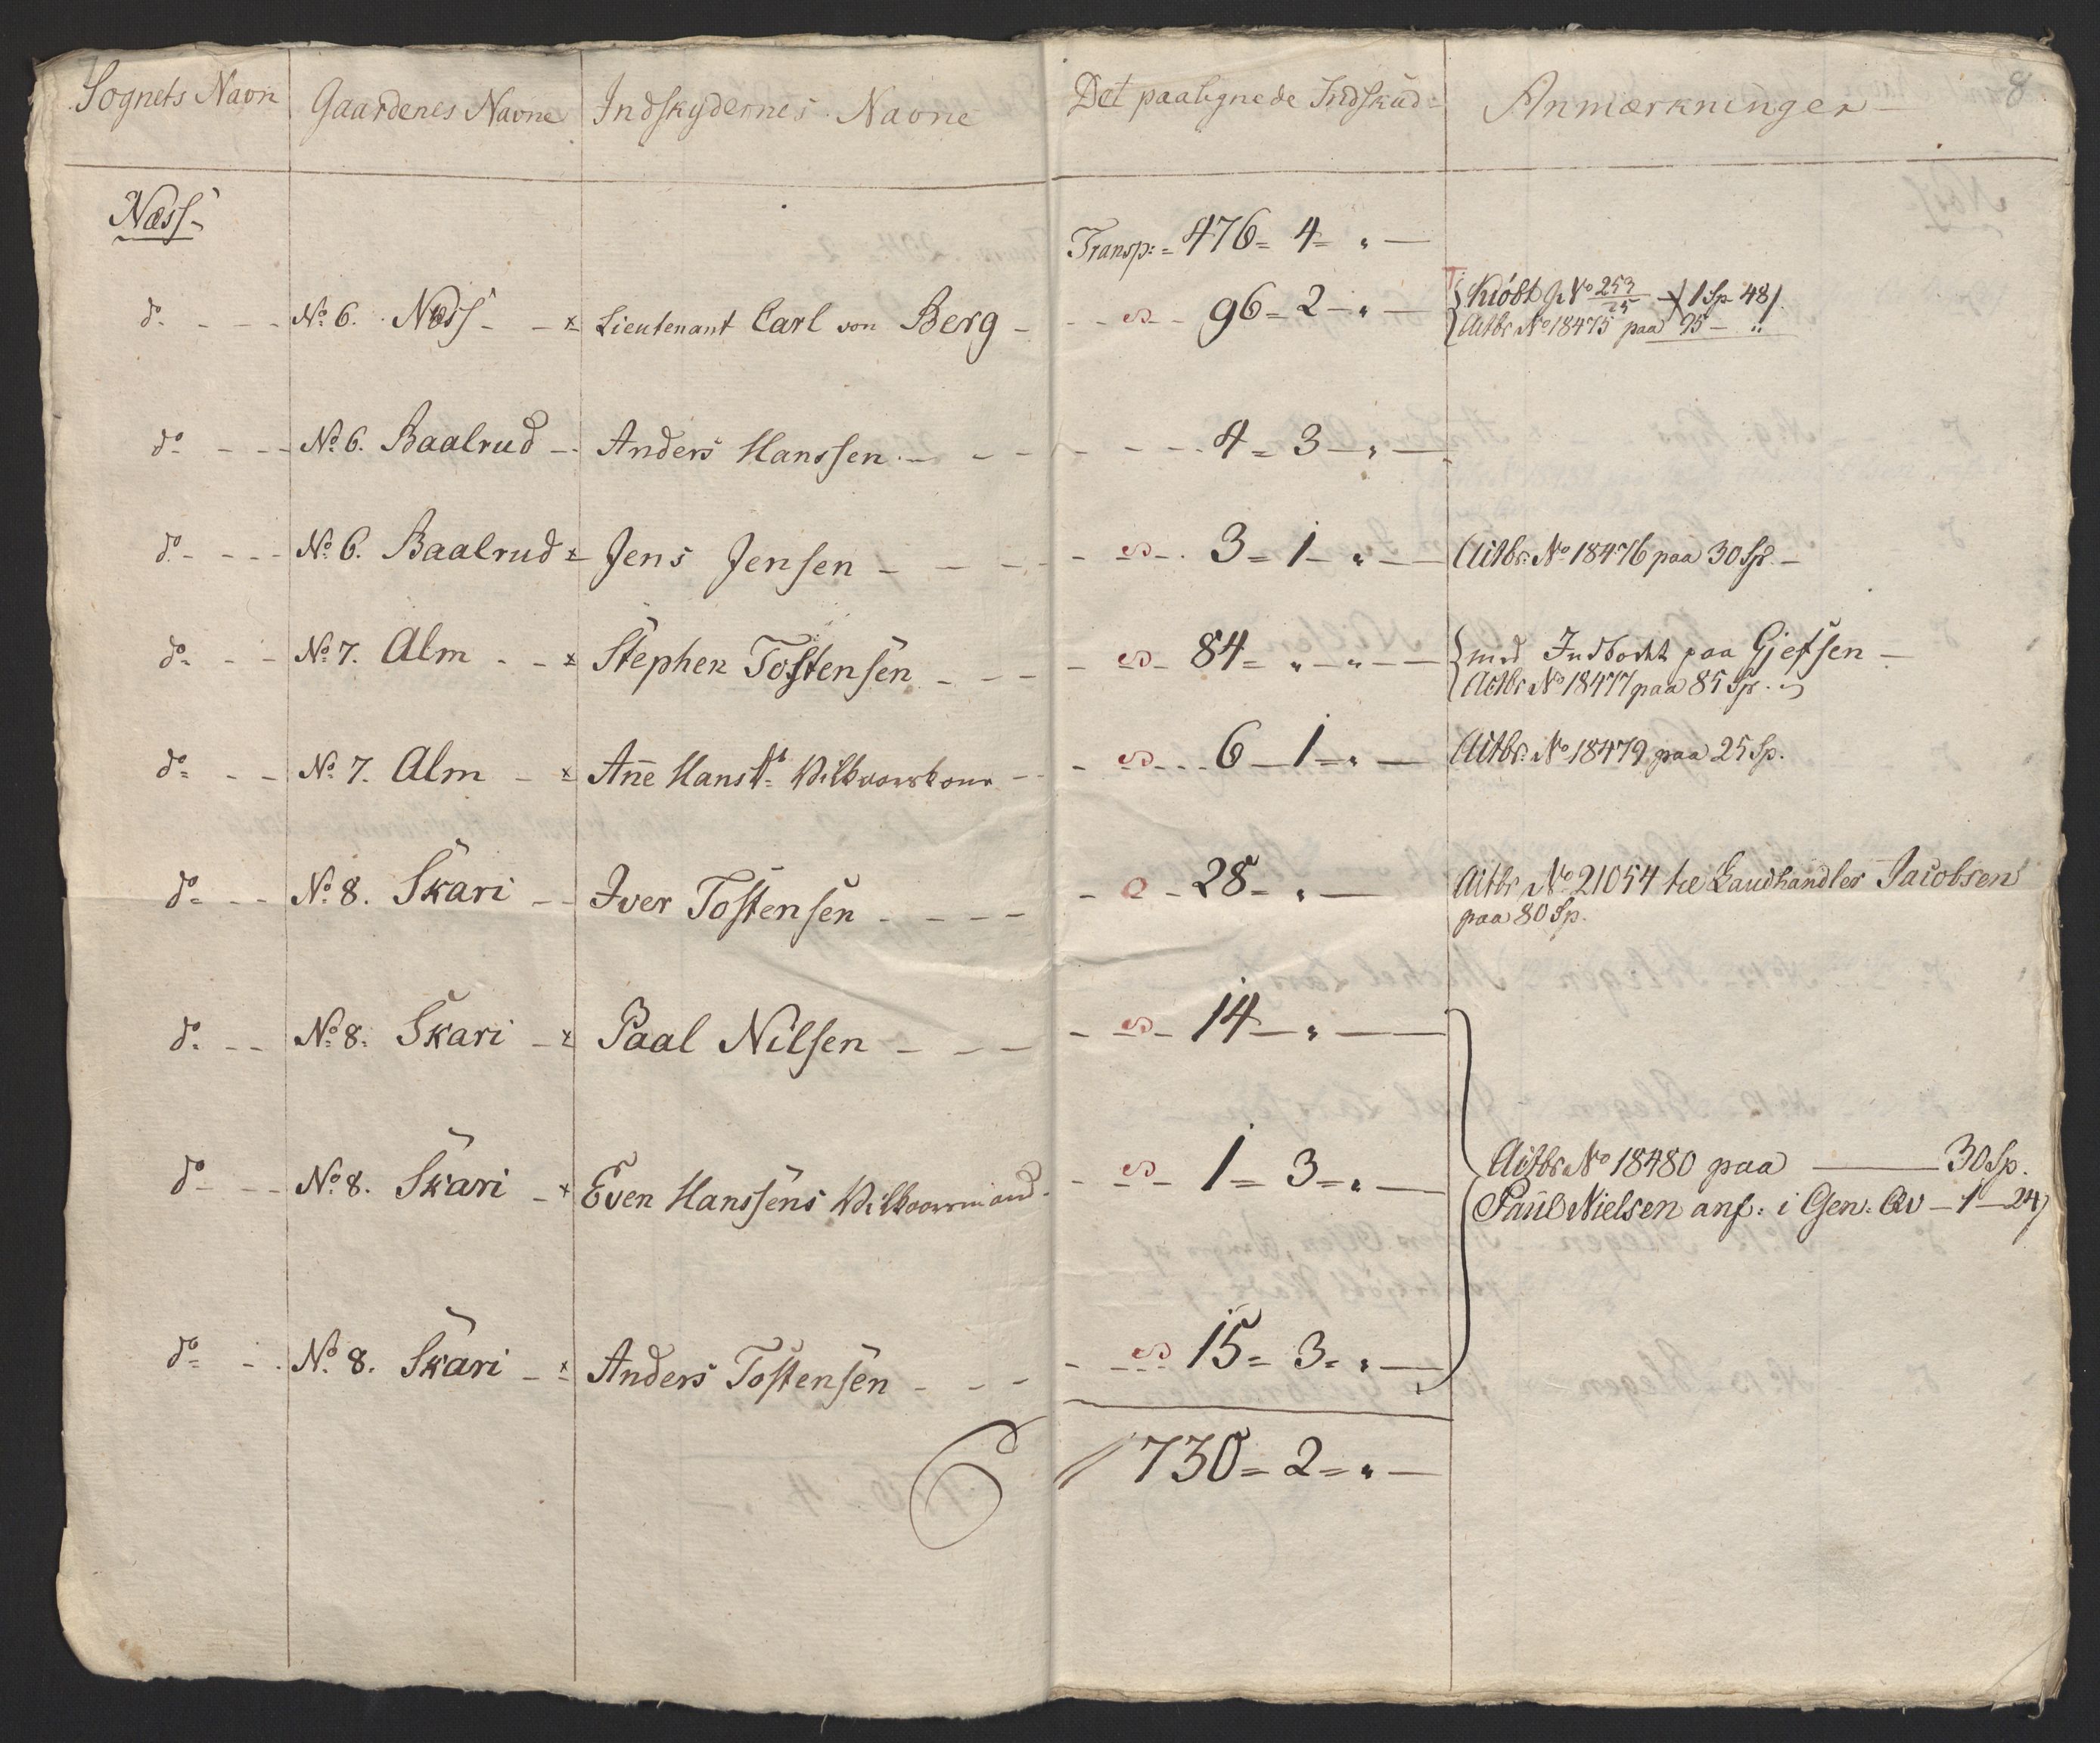 Sognets Navn Gaardenes Navne Indskydernes Navne Det paalignede Indskud Anmærkninger 8
Næss
Transp: 476 = 4 = "
do No 6. Næss x Lieutenant Carl von Berg 96 = 2 - " { Kiöbt No 253/25 1 Sp 48 s.
{ Actbr No 18475 paa 95 - "
do No 6. Baalrud Anders Hanssen 4 = 3 - "
do No 6. Baalrud x Jens Jensen 3 = 1 - " Actbr: No 18476 paa 30 Sp.
do No 7. Alm x Stephen Tostensen 84 = " - " { med paa Gjefsen
{ Actbr No 18477 paa 85 Sp.
do No 7. Alm x Añe Hansd. 6 - 1 = " Actbr: No 18479 paa 25 Sp.
do No 8. Skari Iver Tostensen 28 - " Actbr No 21054 til Landhandler Jacobsen
paa 80 Sp.
do No 8. Skari x Paal Nilsen 14 - "
do No 8. Skari x Even Hanssens 1 = 3 = " Actbr No 18480 paa 30 Sp.
Paul Nielsen anf: i Gen: Qv - 1 - 24 s
do No 8. Skari x Anders Tostensen 15 = 3 = "
730 = 2 = "